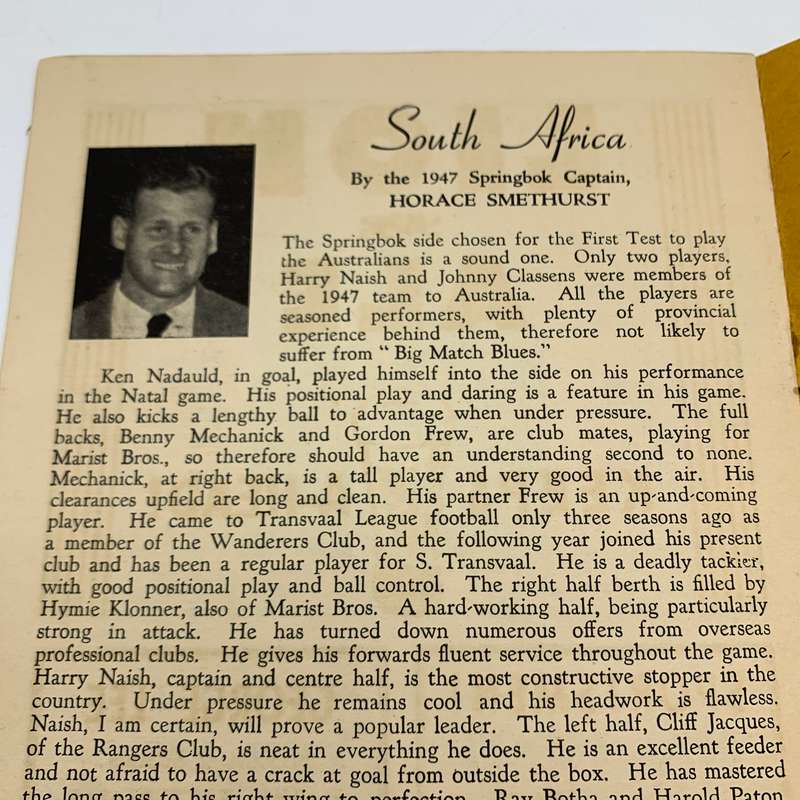 South Africa
By the 1947 Springbok Captain,
HORACE SMETHURST
The Springbok side chosen for the First Test to play
the Australians is a sound one. Only two players,
Harry Naish and Johnny Classens were members of
the 1947 team to Australia. All the players are
seasoned performers, with plenty of provincial
experience behind them, therefore not likely to
suffer from “ Big Match Blues.”
Ken Nadauld, in goal, played himself into the side on his performance
in the Natal game. His positional play and daring is a feature in his game.
He also kicks a lengthy ball to advantage when under pressure. The full
backs, Benny Mechanick and Gordon Frew, are club mates, playing for
Marist Bros., so therefore should have an understanding second to none.
Mechanick, at right back, is a tall player and very good in the air. His
clearances upfield are long and clean. His partner Frew is an up-and-coming
player. He came to Transvaal League football only three seasons ago as
a member of the Wanderers Club, and the following year joined his present
club and has been a regular player for S. Transvaal. He is a deadly tackier,
with good positional play and ball control. The right half berth is filled by
Hymie Klonner, also of Marist Bros. A hard-working half, being particularly
strong in attack. He has turned down numerous offers from overseas
professional clubs. He gives his forwards fluent service throughout the game.
Harry Naish, captain and centre half, is the most constructive stopper in the
country. Under pressure he remains cool and his headwork is flawless.
Naish, I am certain, will prove a popular leader. The left half, Cliff Jacques,
of the Rangers Club, is neat in everything he does. He is an excellent feeder
and not afraid to have a crack at goal from outside the box. He has mastered
the long pass to his right wing to perfection. Ray Botha and Harold Paton